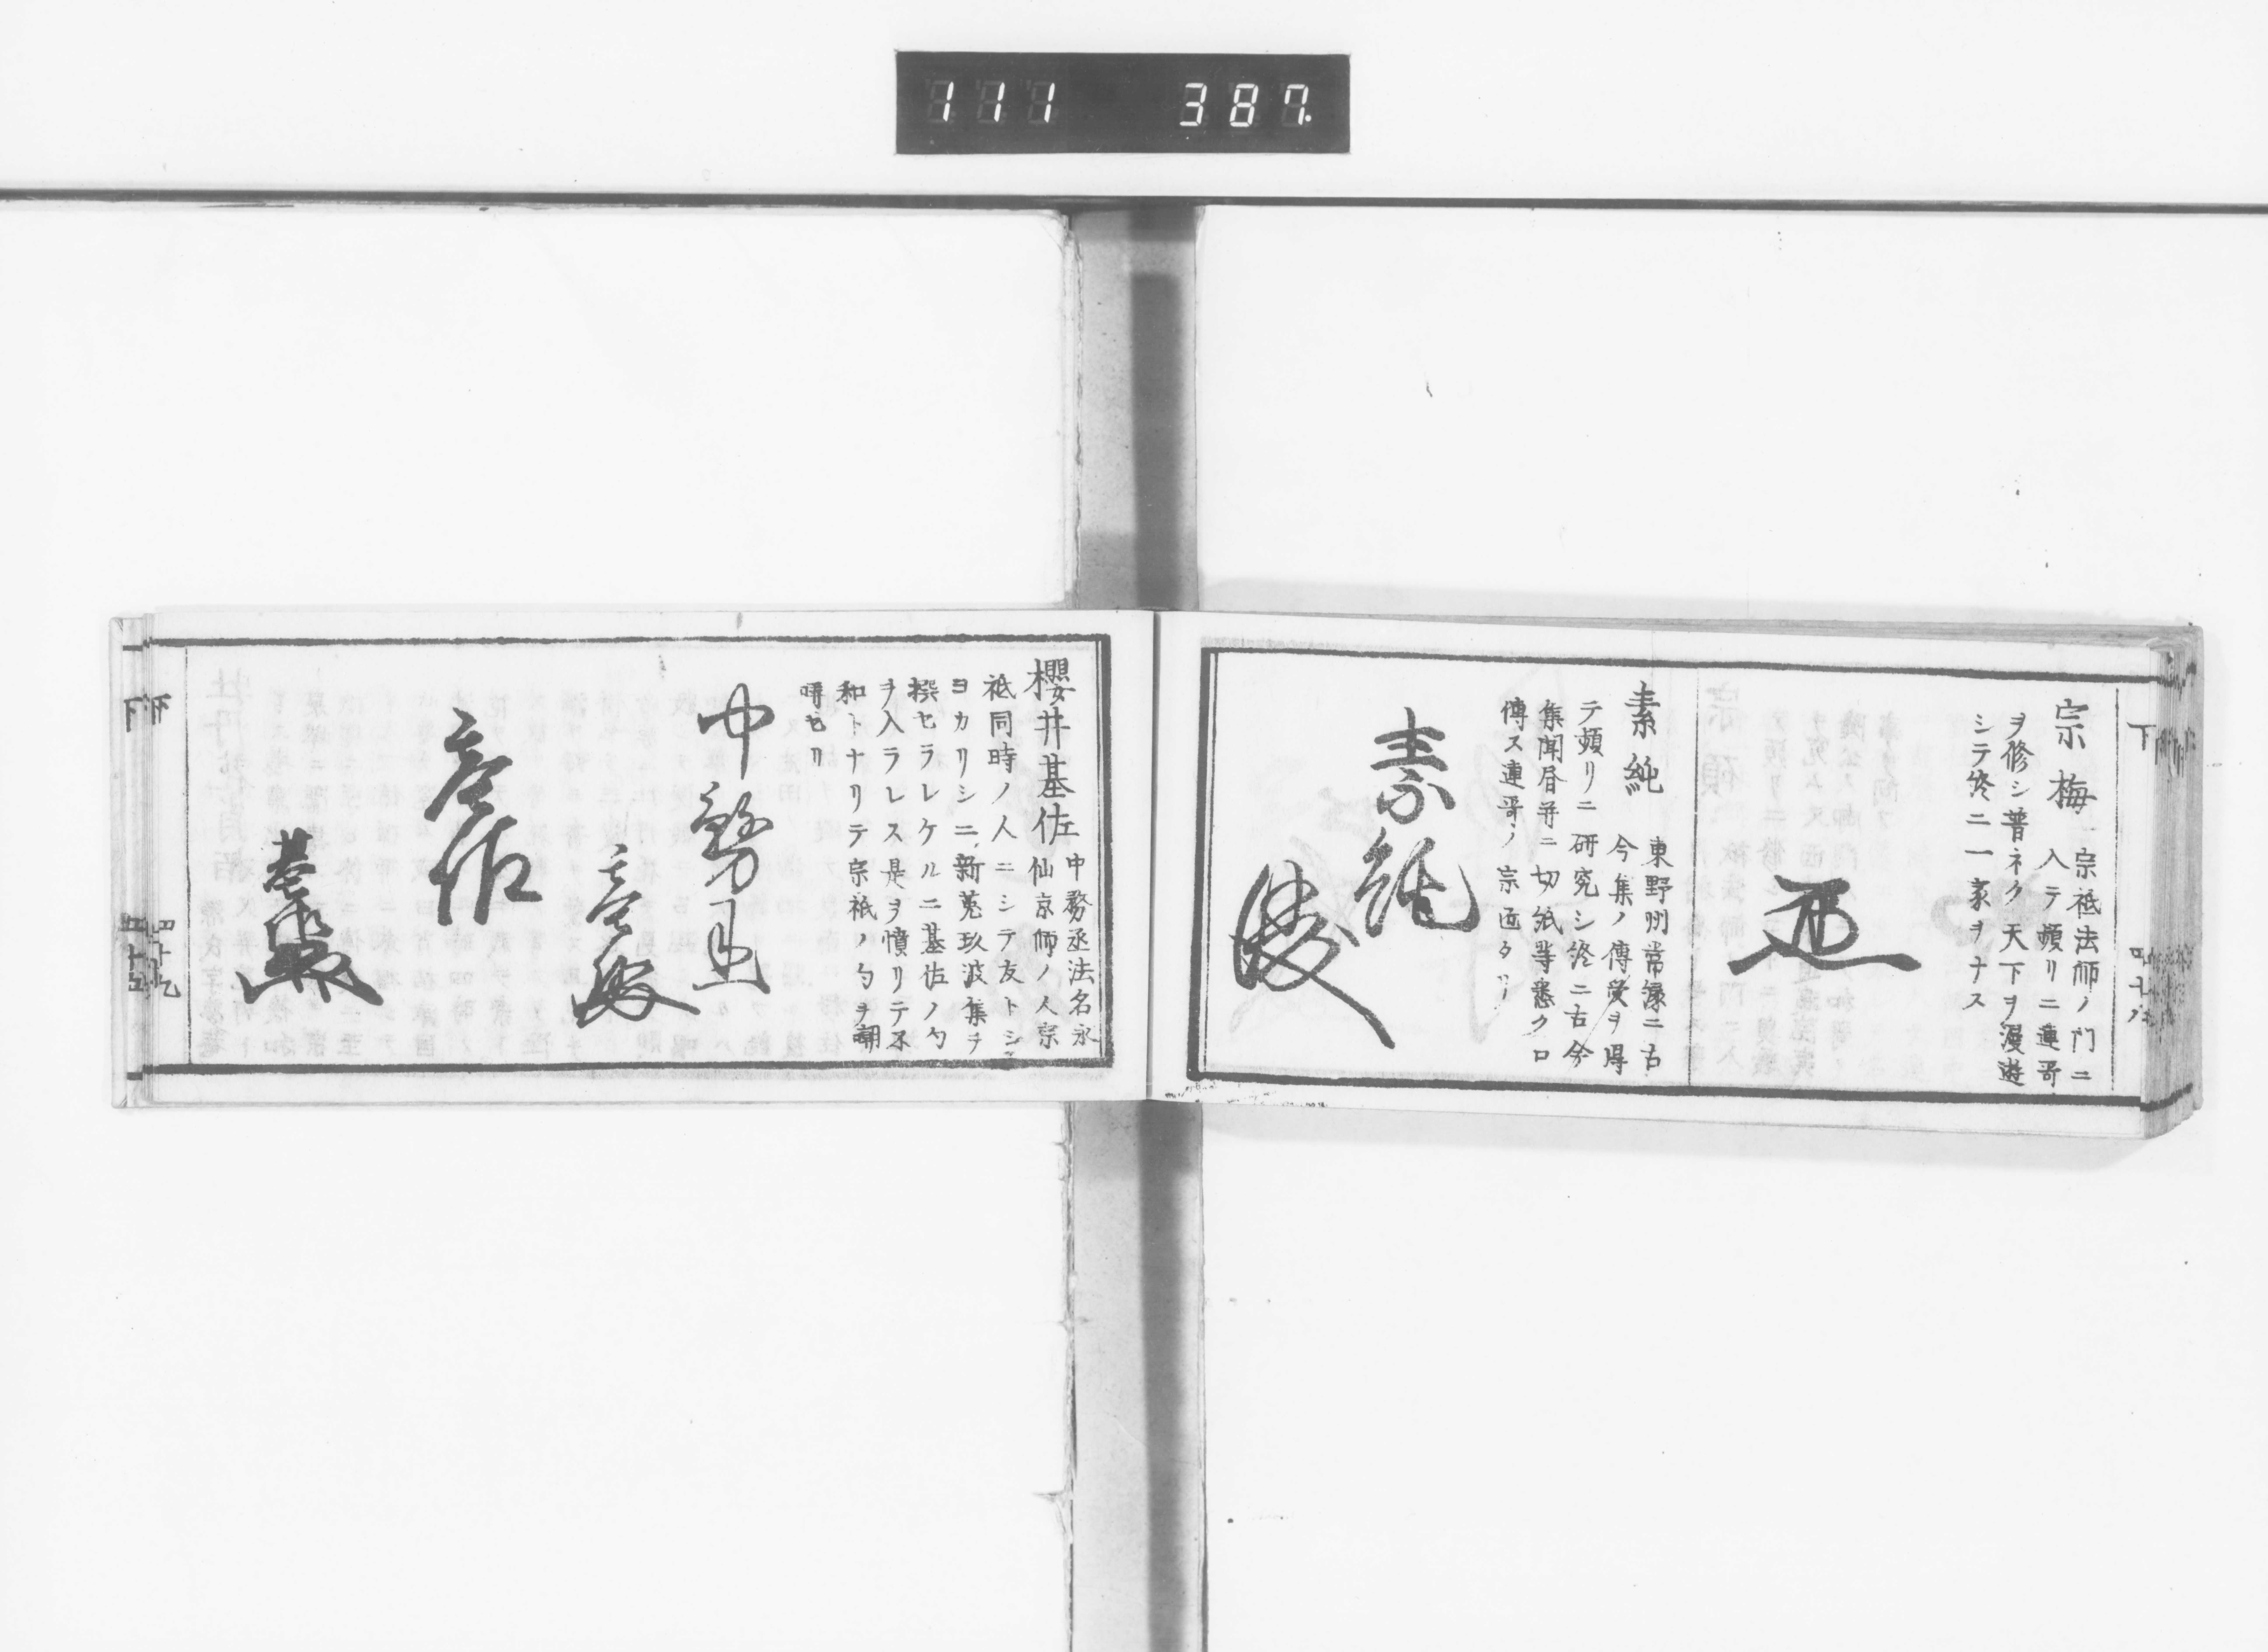 111 387.
宗梅
宗祗法師ノ門ニ
入テ頻リニ連哥
ヲ修シ普ネク天下ヲ漫遊
シテ終ニ一家ヲナス
素純
東野州常縁ニ古
今集ノ傳受ヲ得
テ頻リニ研究シ終ニ古今
集聞昏并ニ切紙等悉クロ
傳ス連哥ノ宗匠タリ
素純
櫻井基佐
中務丞法名永
仙京師ノ人宗
祗同時ノ人ニシテ友トシ
ヨカリシニ新菟玖波集ヲ
撰セラレケルニ基佐ノ勺
ヲ入ラレス是ヲ憤リテ不
和トナリテ宗祇ノ勺ヲ嘲
哢セリ
中務丞
基佐
下
下